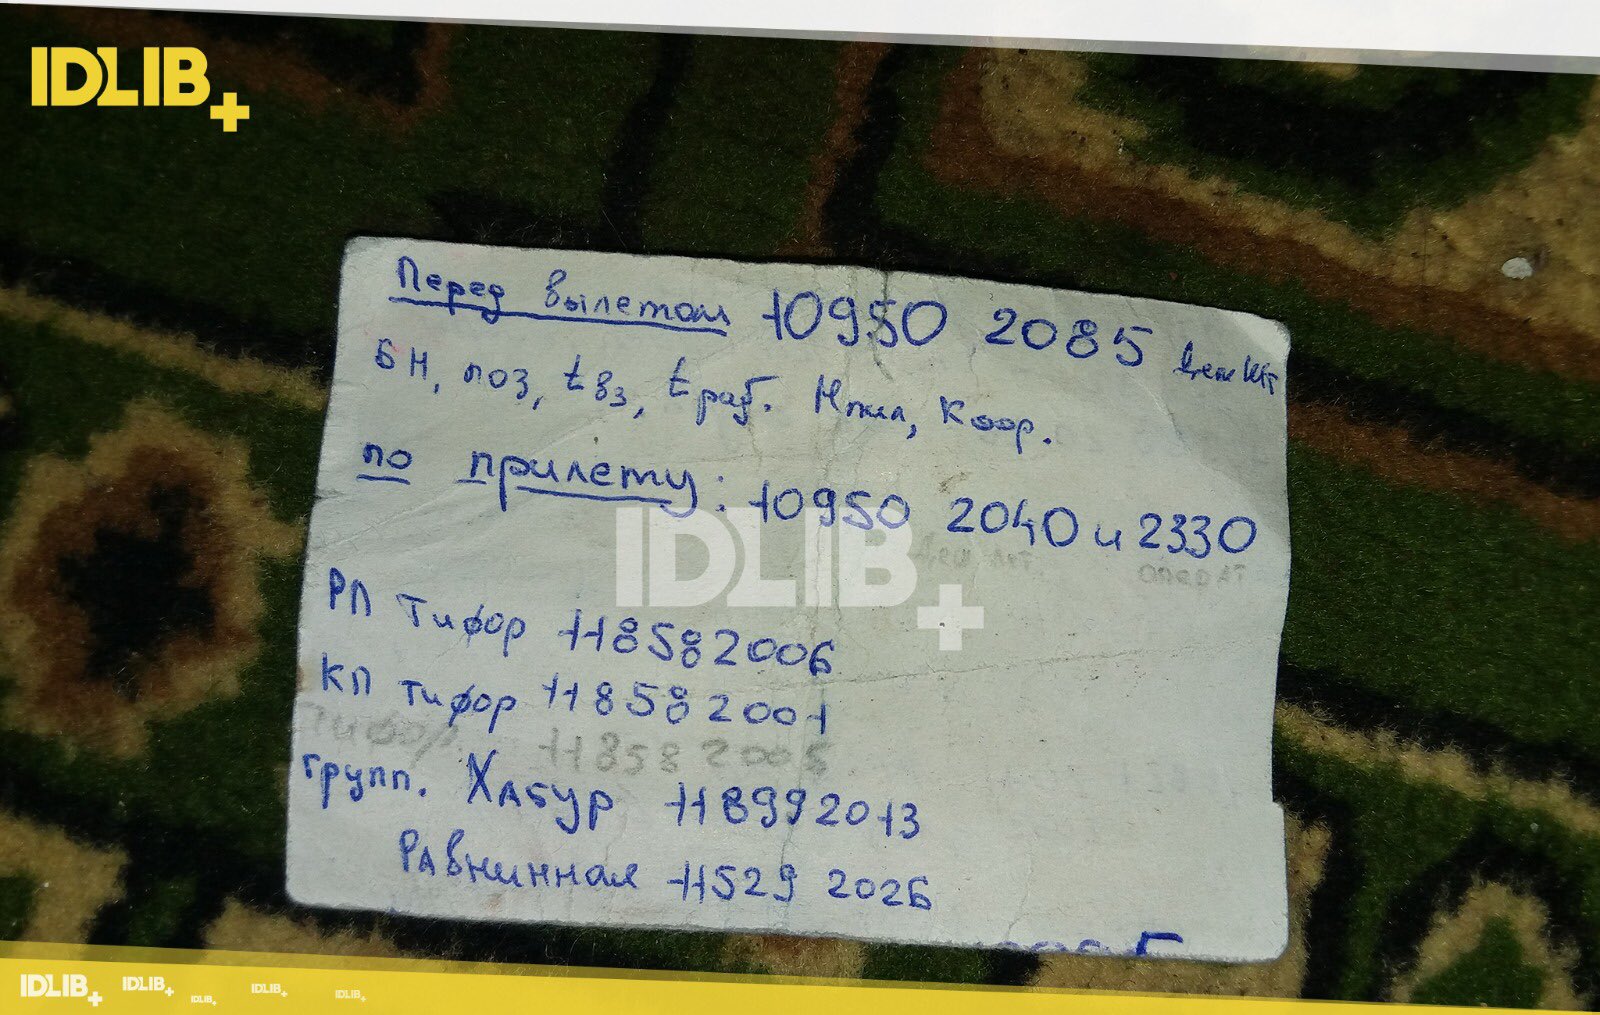 IDLIB+
Перед вылетом 10950 2085
БН, поз, tвз, tраб. Нпил, Коор.
по прилету: 10950 2040 и 2330
операт
IDLIB+
РП Тифор 118582006
КП тифор 118582001
Тифор. 118582005
групп. Хабур 118992013
Равнинная 11529 2026
IDLIB+ IDLIB+ IDLIB+ IDLIB+ IDLIB+